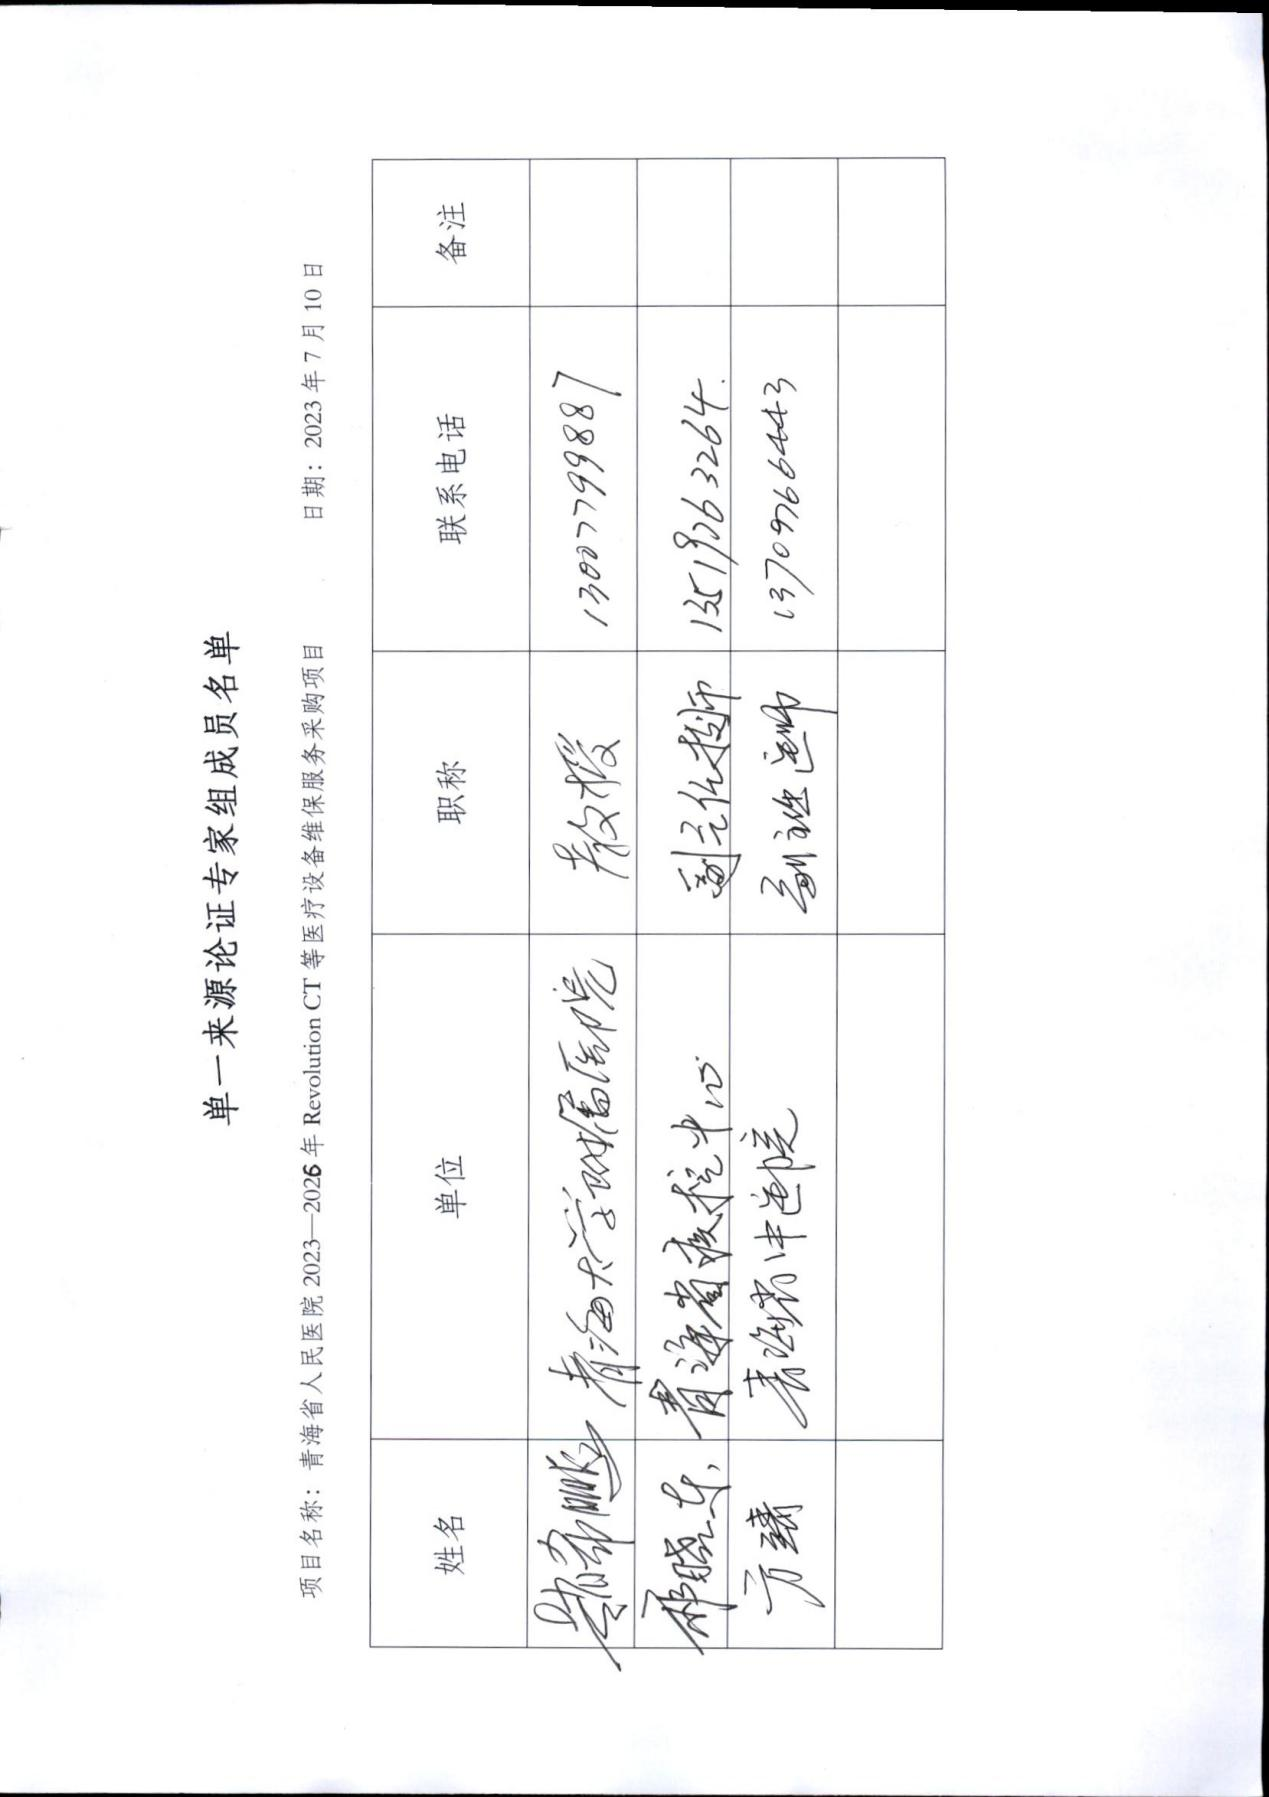 单一来源论证专家组成员名单
项目名称：青海省人民医院 2023—2026 年 Revolution CT 等医疗设备维保服务采购项目 日期：2023 年 7 月 10 日
姓名 单位 职称 联系电话 备注
青海大学附属医院 教授 13007799887
邢晓东 青海省疾控中心 副主任技师 13519763264
方臻 青海省中医院 副主任医师 13709766443